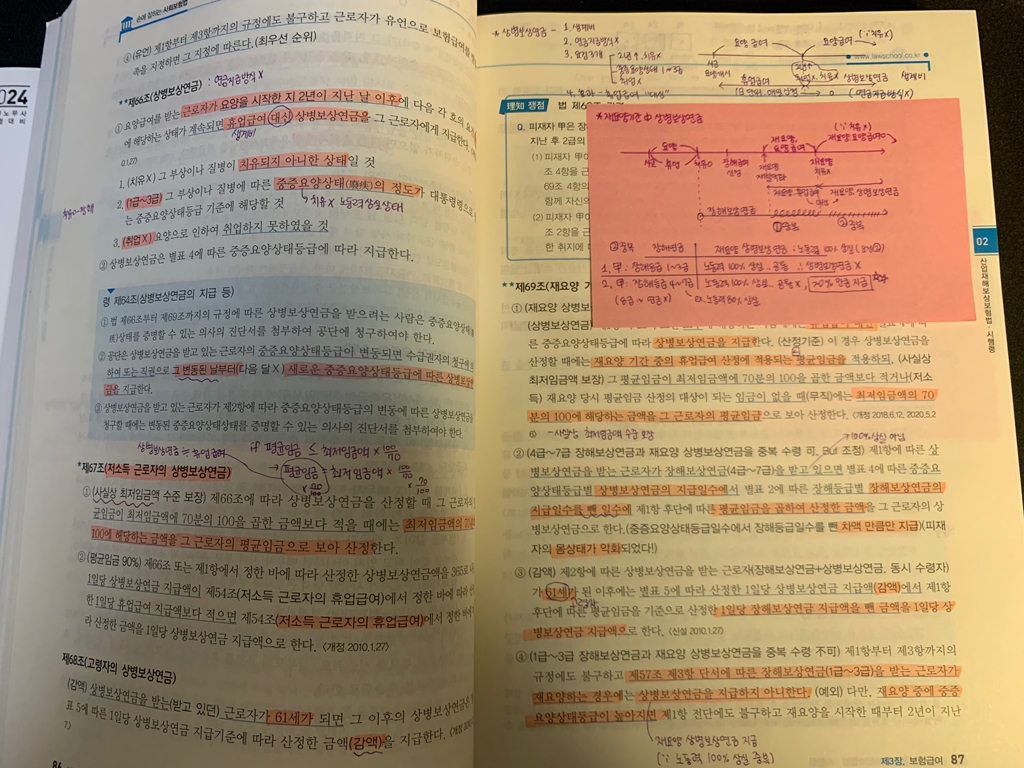 손에 잡히는 사회보험법
④ (유언) 제1항부터 제3항까지의 규정에도 불구하고 근로자가 유언으로 보험급여를
족을 지정하면 그 지정에 따른다. (최우선 순위)
024
노무사
대비
**제66조(상병보상연금) : 연금지급방식 X
① 요양급여를 받는 근로자가 요양을 시작한 지 2년이 지난 날 이후에 다음 각 호의
에 해당하는 상태가 계속되면 휴업급여 대신 상병보상연금을 그 근로자에게 지급한다.
생계비
0.1.27)
1. (치유X) 그 부상이나 질병이 치유되지 아니한 상태일 것
2. (1급~3급) 그 부상이나 질병에 따른 중증요양상태(廢疾)의 정도가 대통령령으로
는 중증요양상태등급 기준에 해당할 것
→ 치유X 노동력상실상태
3. (취업X) 요양으로 인하여 취업하지 못하였을 것
② 상병보상연금은 별표 4에 따른 중증요양상태등급에 따라 지급한다.
령 제64조(상병보상연금의 지급 등)
① 법 제66조부터 제69조까지의 규정에 따른 상병보상연금을 받으려는 사람은 중증요양상태
를 증명할 수 있는 의사의 진단서를 첨부하여 공단에 청구하여야 한다.
② 공단은 상병보상연금을 받고 있는 근로자의 중증요양상태등급이 변동되면 수급권자의 청구에
하여 또는 직권으로 그 변동된 날부터(다음 달X) 새로운 중증요양상태등급에 따른 상병보상
금을 지급한다.
③ 상병보상연금을 받고 있는 근로자가 제2항에 따라 중증요양상태등급의 변동에 따른 상병보상연금을
청구할 때에는 변동된 중증요양상태를 증명할 수 있는 의사의 진단서를 첨부하여야 한다.
상병보상연금 = 휴업급여
if 평균임금 ≤ 최저임금액 × 100/70
→ 평균임금 = 최저임금액 × 100/70 × 70/100
*제67조(저소득 근로자의 상병보상연금)
① (사실상 최저임금액 수준 보장) 제66조에 따라 상병보상연금을 산정할 때 그 근로자의
균임금이 최저임금액에 70분의 100을 곱한 금액보다 적을 때에는 최저임금액의 70
100에 해당하는 금액을 그 근로자의 평균임금으로 보아 산정한다.
② (평균임금 90%) 제66조 또는 제1항에서 정한 바에 따라 산정한 상병보상연금액을 365로
1일당 상병보상연금 지급액이 제54조(저소득 근로자의 휴업급여)에서 정한 바에 따라 산
한 1일당 휴업급여 지급액보다 적으면 제54조(저소득 근로자의 휴업급여)에서 정한 바에
라 산정한 금액을 1일당 상병보상연금 지급액으로 한다. 〈개정 2010.1.27〉
제68조(고령자의 상병보상연금)
(감액) 상병보상연금을 받는(받고 있던) 근로자가 61세가 되면 그 이후의 상병보상연금은
표 5에 따른 1일당 상병보상연금 지급기준에 따라 산정한 금액(감액)을 지급한다. 〈개정
7〉
* 상병보상연금 - 1. 생계비
2. 연금지급방식X
3. 요건3개
2년 후, 치유X
중증요양상태 1~3급
취업X
4. 요양-휴업급여 "대상"
요양급여
요양급여 (∵치유X)
휴업급여
상병보상연금
생계비
(연금지급방식X)
www.lawschool.co.kr
理知 쟁점
Q. 피재자 甲은 장
지난 후 2급의
(1) 피재자 甲이
조 4항을 근
69조 4항의
함께 자신의
(2) 피재자 甲이
조 2항을 근
한 취지에
* 재요양기간 中 상병보상연금
요양
휴업
치유O
장해급여
재요양
요양급여
(∵치유X)
재요양 요양급여O
재요양 휴업급여
재요양 상병보상연금
장해보상연금
①중복
②중복
장해연금
재요양 상병보상연금 : 노동력 100% 상실
1. 甲 : 장해등급 1~3급
노동력 100% 상실 … 공통 ∴ 상병보상연금 X
2. 甲 : 장해등급 4~7급
ex. 노동력 80% 상실
**제69조(재요양 기
① (재요양 상병보상
(상병보상연금)
증요양상태등급에 따라 상병보상연금을 지급한다. (산정기준) 이 경우 상병보상연금을
산정할 때에는 재요양 기간 중의 휴업급여 산정에 적용되는 평균임금을 적용하되, (사실상
최저임금액 보장) 그 평균임금이 최저임금액에 70분의 100을 곱한 금액보다 적거나(저소
득) 재요양 당시 평균임금 산정의 대상이 되는 임금이 없을 때(무직)에는 최저임금액의 70
분의 100에 해당하는 금액을 그 근로자의 평균임금으로 보아 산정한다. 〈개정 2018.6.12, 2020.5.2
6〉
- 사실상 최저임금액 수준 보장
→ 100% 상실 아님
② (4급~7급 장해보상연금과 재요양 상병보상연금을 중복 수령 可, But 조정) 제1항에 따른 상
병보상연금을 받는 근로자가 장해보상연금(4급~7급)을 받고 있으면 별표 4에 따른 중증요
양상태등급별 상병보상연금의 지급일수에서 별표 2에 따른 장해등급별 장해보상연금의
지급일수를 뺀 일수에 제1항 후단에 따른 평균임금을 곱하여 산정한 금액을 그 근로자의 상
병보상연금으로 한다. (중증요양상태등급일수에서 장해등급일수를 뺀 차액 만큼만 지급)(피재
자의 몸상태가 악화되었다!)
③ (감액) 제2항에 따른 상병보상연금을 받는 근로자(장해보상연금+상병보상연금, 동시 수령자)
가 61세가 된 이후에는 별표 5에 따라 산정한 1일당 상병보상연금 지급액(감액)에서 제1항
후단에 따른 평균임금을 기준으로 산정한 1일당 장해보상연금 지급액을 뺀 금액을 1일당 상
병보상연금 지급액으로 한다. 〈신설 2010.1.27〉
④ (1급~3급 장해보상연금과 재요양 상병보상연금을 중복 수령 不可) 제1항부터 제3항까지의
규정에도 불구하고 제57조 제3항 단서에 따른 장해보상연금(1급~3급)을 받는 근로자가
재요양하는 경우에는 상병보상연금을 지급하지 아니한다. (예외) 다만, 재요양 중에 중증
요양상태등급이 높아지면 제1항 전단에도 불구하고 재요양을 시작한 때부터 2년이 지난
재요양 상병보상연금 지급
(∵ 노동력 100% 상실 중복)
02
산업재해보상보험법·시행령
제3장. 보험급여 87